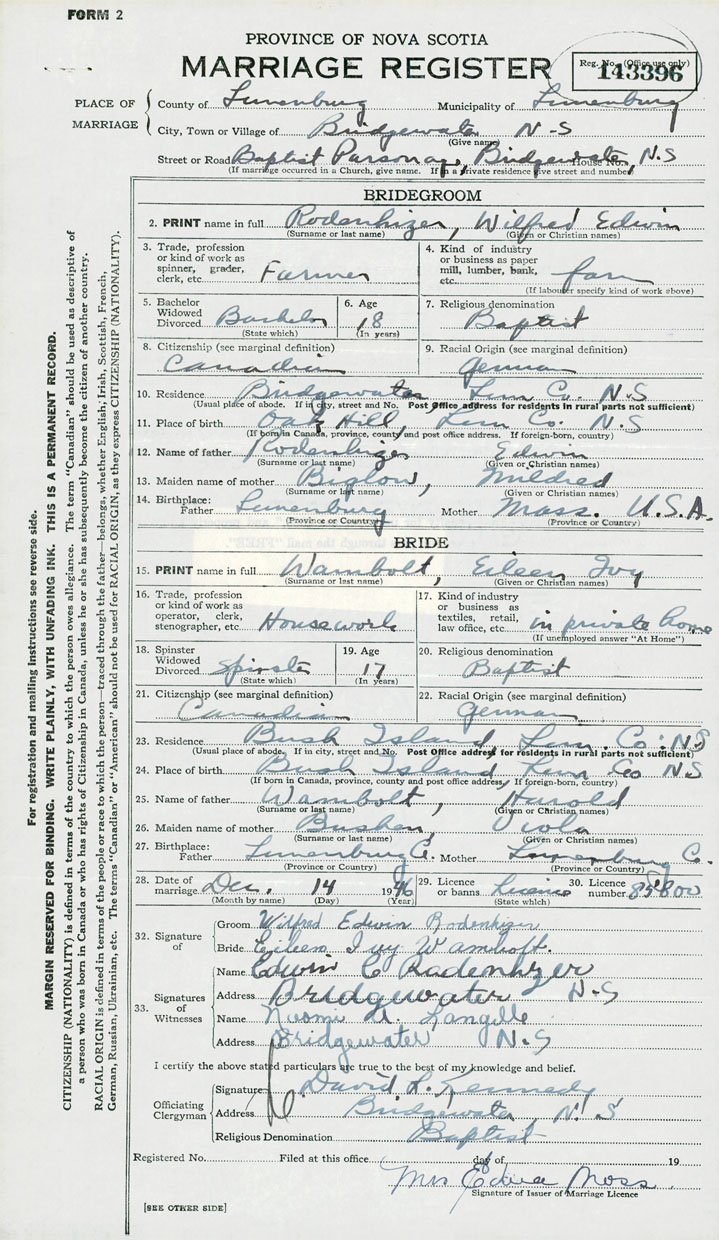 FORM 2
PROVINCE OF NOVA SCOTIA
MARRIAGE REGISTER
Reg. No. (Office use only)
143396
PLACE OF MARRIAGE
County of Lunenburg Municipality of Lunenburg
City, Town or Village of Bridgewater N-S
(Give name)
Street or Road Baptist Parsonage, Bridgewater, House No. N.S
(If marriage occurred in a Church, give name. If in a private residence give street and number)
BRIDEGROOM
2. PRINT name in full Rodenhizer, Wilfred Edwin
(Surname or last name) (Given or Christian names)
3. Trade, profession or kind of work as spinner, grader, clerk, etc. Farmer
4. Kind of industry or business as paper mill, lumber, bank, etc. farm
(If labourer specify kind of work above)
5. Bachelor Widowed Divorced Bachelor
(State which)
6. Age 18
(In years)
7. Religious denomination
Baptist
8. Citizenship (see marginal definition)
Canadian
9. Racial Origin (see marginal definition)
German
10. Residence Bridgewater Lun. Co. N.S
(Usual place of abode. If in city, street and No. Post Office address for residents in rural parts not sufficient)
11. Place of birth Oak Hill, Lun Co. N.S
(If born in Canada, province, county and post office address. If foreign-born, country)
12. Name of father Rodenhizer Edwin
(Surname or last name) (Given or Christian names)
13. Maiden name of mother Biglow, Mildred
(Surname or last name) (Given or Christian names)
14. Birthplace: Father Lunenburg Mother Mass. U.S.A.
(Province or Country) (Province or Country)
BRIDE
15. PRINT name in full Wambolt, Eileen Ivy
(Surname or last name) (Given or Christian names)
16. Trade, profession or kind of work as operator, clerk, stenographer, etc. Housework
17. Kind of industry or business as textiles, retail, law office, etc. in private home
(If unemployed answer "At Home")
18. Spinster Widowed Divorced Spinster
(State which)
19. Age 17
(In years)
20. Religious denomination
Baptist
21. Citizenship (see marginal definition)
Canadian
22. Racial Origin (see marginal definition)
German
23. Residence Bush Island Lun. Co. N.S
(Usual place of abode. If in city, street and No. Post Office address for residents in rural parts not sufficient)
24. Place of birth Bush Island, Lun Co N.S
(If born in Canada, province, county and post office address. If foreign-born, country)
25. Name of father Wambolt, Harold
(Surname or last name) (Given or Christian names)
26. Maiden name of mother Bushen, Viola
(Surname or last name) (Given or Christian names)
27. Birthplace: Father Lunenburg C. Mother Lunenburg Co.
(Province or Country) (Province or Country)
28. Date of marriage Dec. 14 1946
(Month by name) (Day) (Year)
29. Licence or banns Licence
(State which)
30. Licence number 85800
32. Signature of
Groom Wilfred Edwin Rodenhizer
Bride Eileen Ivy Wambolt.
33. Signatures of Witnesses
Name Edwin C Rodenhizer
Address Bridgewater N-S
Name Naomi Langille
Address Bridgewater N.S
I certify the above stated particulars are true to the best of my knowledge and belief.
Officiating Clergyman
Signature David L. Kennedy
Address Bridgewater, N.S
Religious Denomination Baptist
Registered No. Filed at this office day of 19
Mrs Edna Moss
Signature of Issuer of Marriage Licence
[SEE OTHER SIDE]
For registration and mailing instructions see reverse side.
MARGIN RESERVED FOR BINDING. WRITE PLAINLY, WITH UNFADING INK. THIS IS A PERMANENT RECORD.
CITIZENSHIP (NATIONALITY) is defined in terms of the country to which the person owes allegiance. The term "Canadian" should be used as descriptive of
a person who was born in Canada or who has rights of Citizenship in Canada, unless he or she has subsequently become the citizen of another country.
RACIAL ORIGIN is defined in terms of the people or race to which the person—traced through the father—belongs, whether English, Irish, Scottish, French,
German, Russian, Ukrainian, etc. The terms "Canadian" or "American" should not be used for RACIAL ORIGIN, as they express CITIZENSHIP (NATIONALITY).